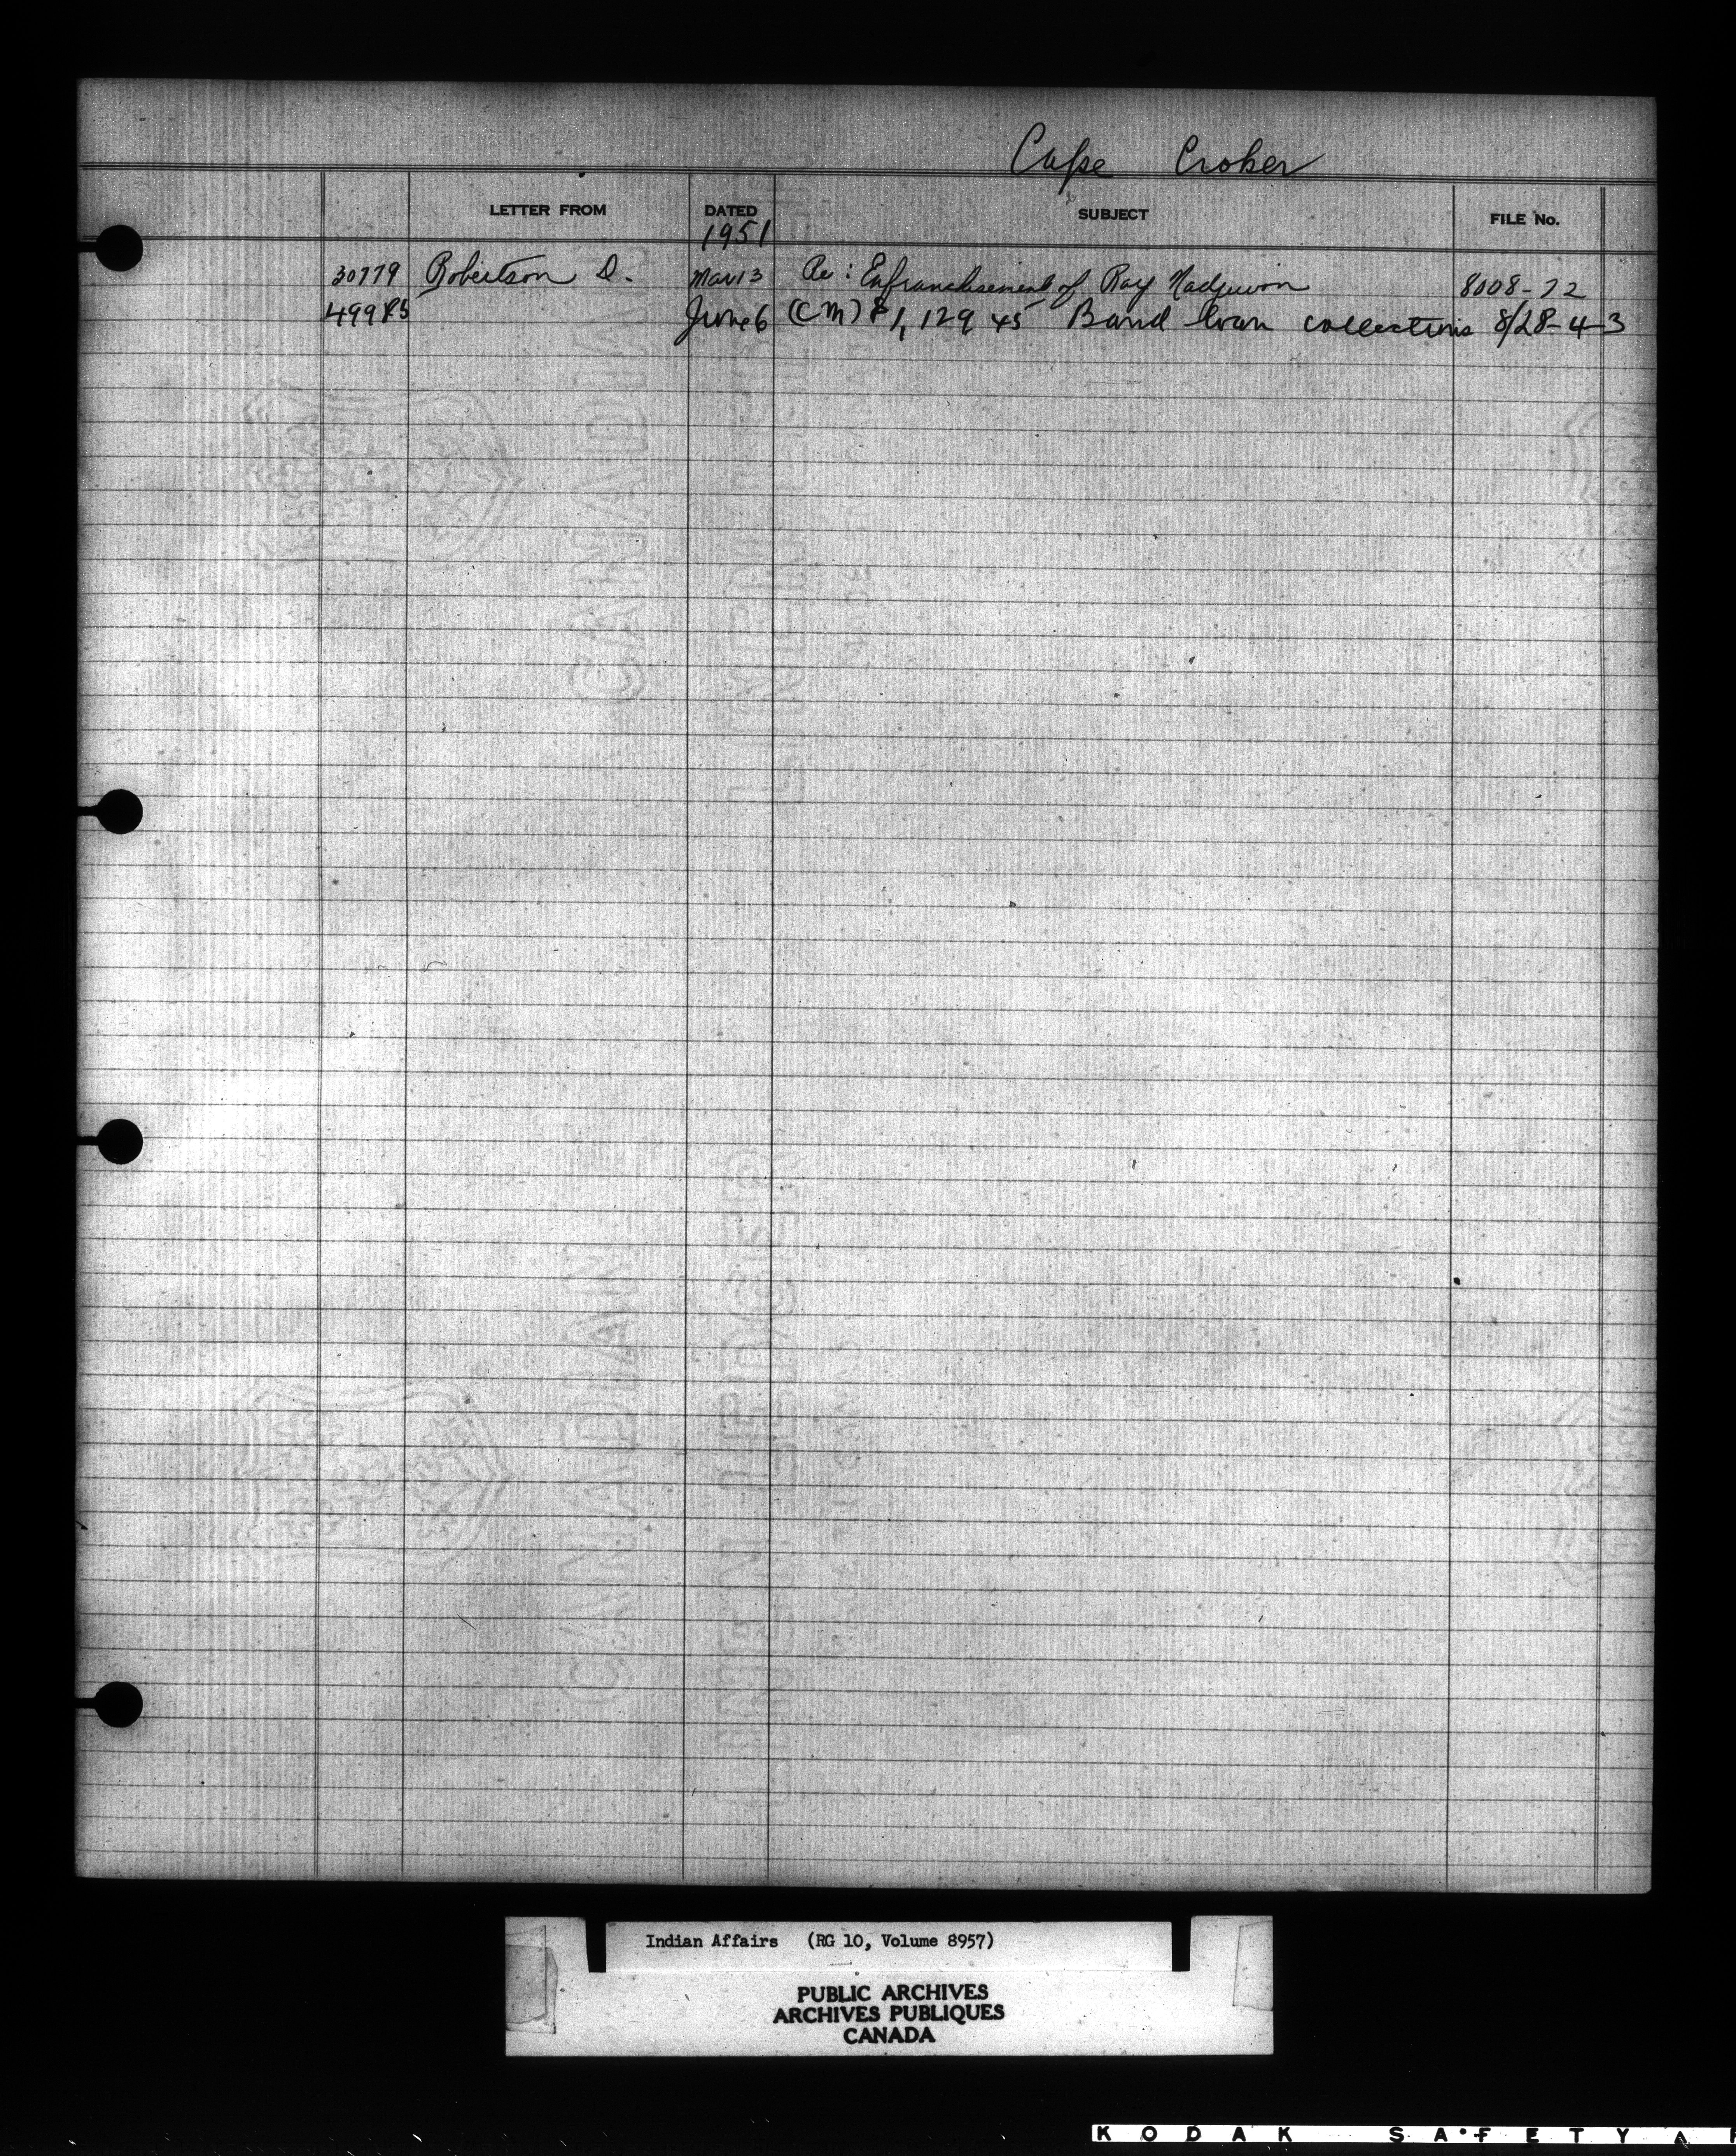 Cape Croker
LETTER FROM DATED SUBJECT FILE No.
1951
30779 Robertson D. Mar 13 Re: Enfranchisement of Ray Nadjiwon 8008-72
49985 June 6 (CM) $1,129 45 Band loan collections 8/28-4-3
Indian Affairs (RG 10, Volume 8957)
PUBLIC ARCHIVES
ARCHIVES PUBLIQUES
CANADA
KODAK SAFETY